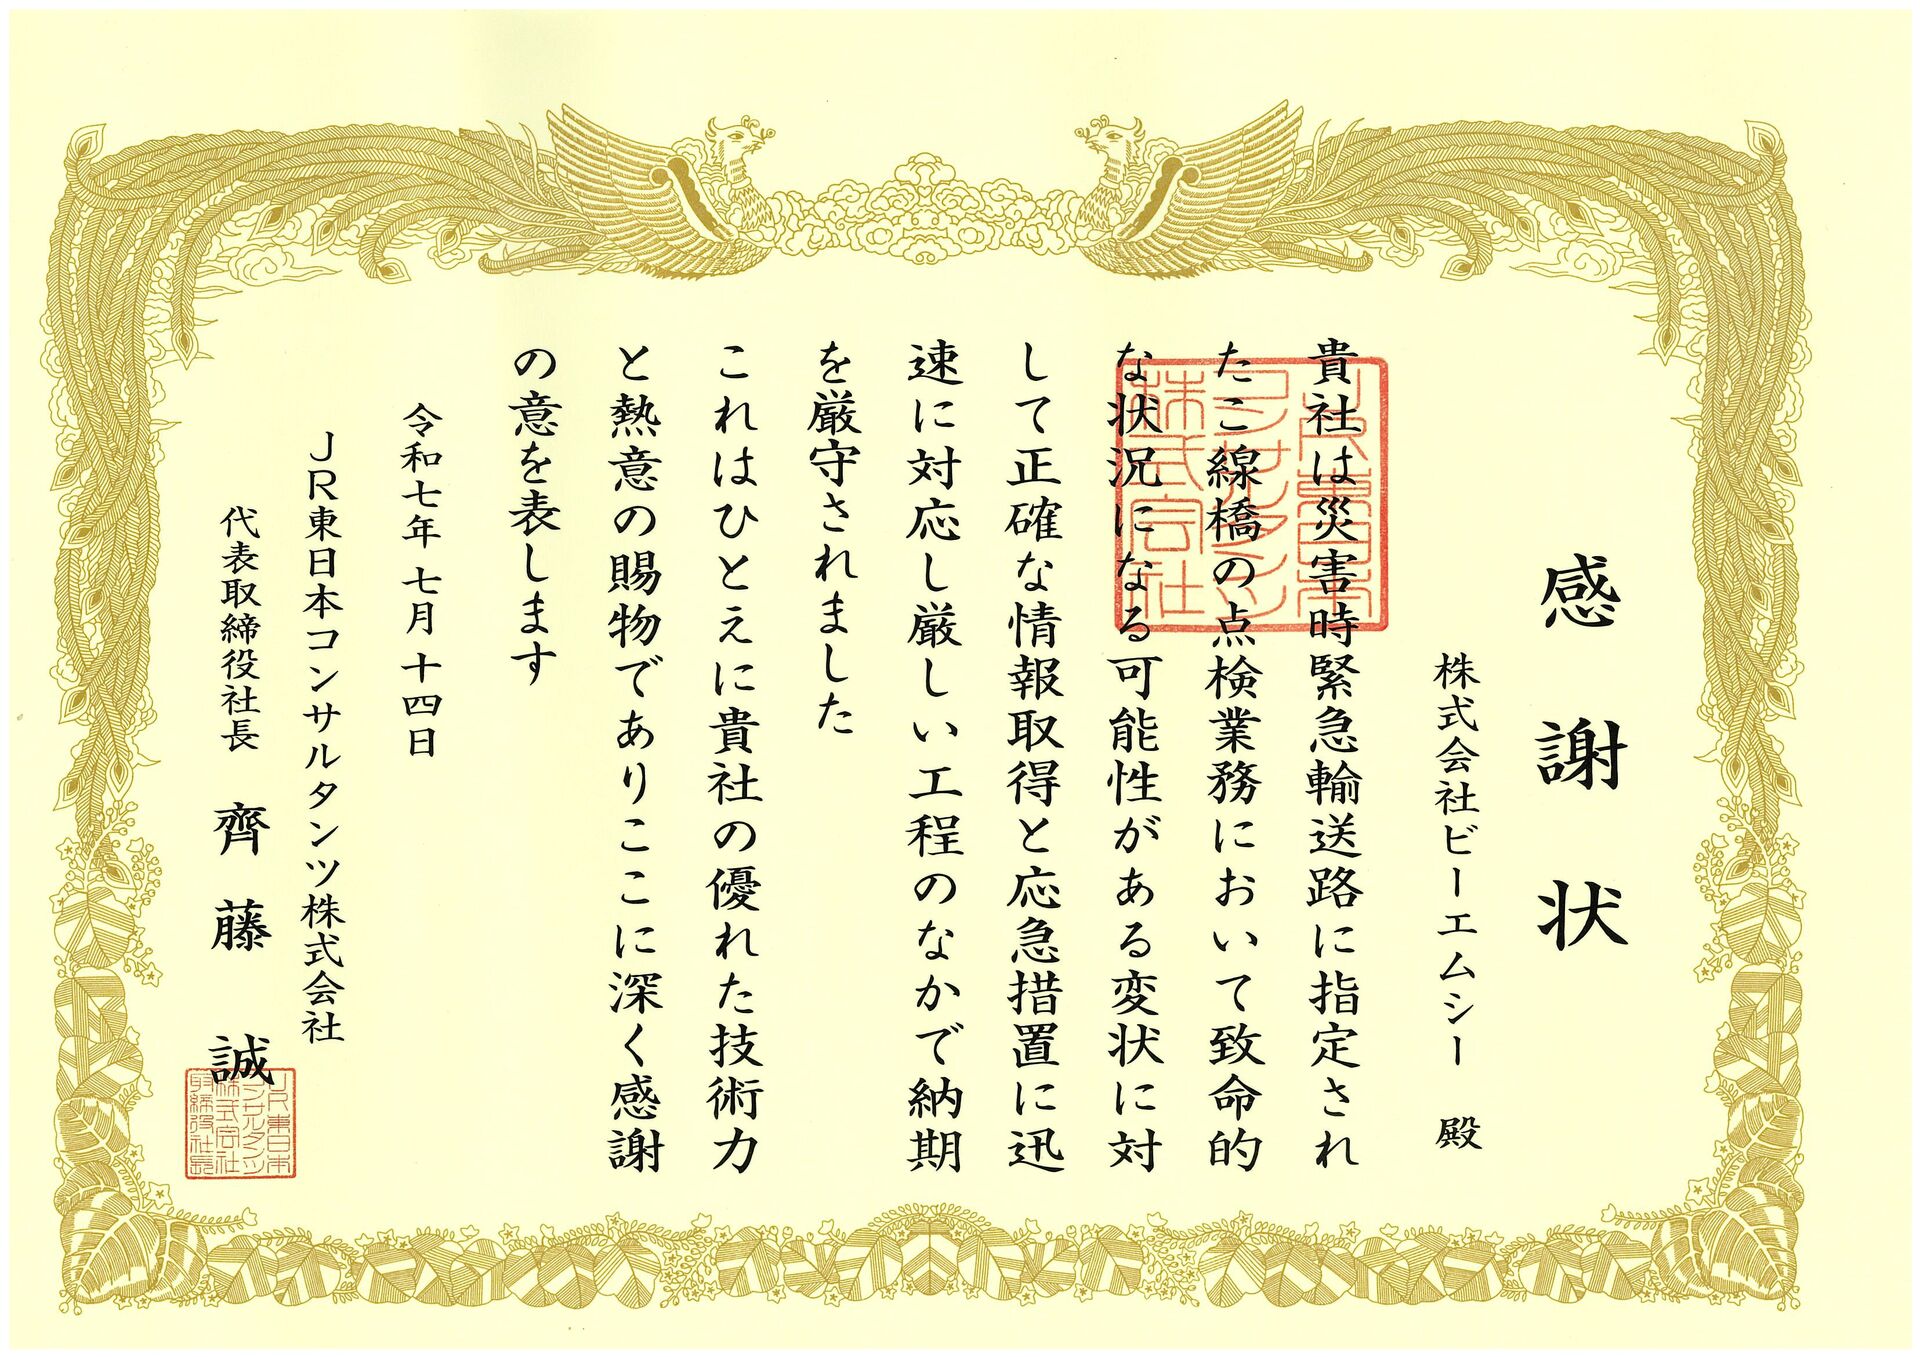 感謝状
株式会社ビーエムシー 殿
貴社は災害時緊急輸送路に指定され
たこ線橋の点検業務において致命的
な状況になる可能性がある変状に対
して正確な情報取得と応急措置に迅
速に対応し厳しい工程のなかで納期
を厳守されました
これはひとえに貴社の優れた技術力
と熱意の賜物でありここに深く感謝
の意を表します
令和七年 七月 十四日
JR東日本コンサルタンツ株式会社
代表取締役社長 齊藤 誠
JR東日本
コンサルタンツ
株式会社
JR東日本
コンサルタンツ
株式会社
取締役社長